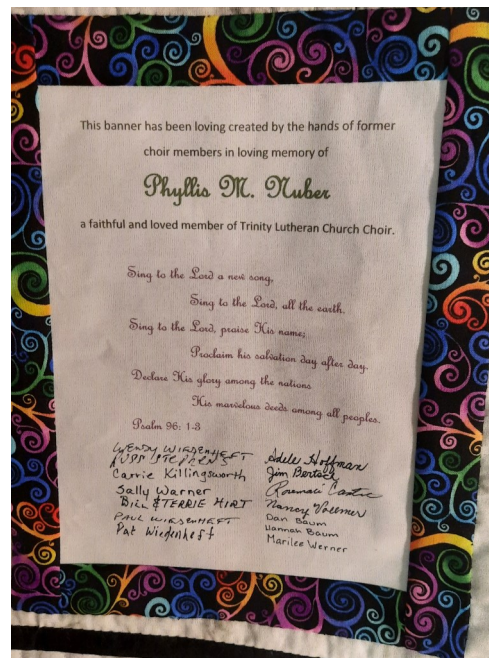 This banner has been loving created by the hands of former
choir members in loving memory of
Phyllis M. Nuber
a faithful and loved member of Trinity Lutheran Church Choir.
Sing to the Lord a new song,
Sing to the Lord, all the earth.
Sing to the Lord, praise His name;
Proclaim his salvation day after day.
Declare His glory among the nations
His marvelous deeds among all peoples.
Psalm 96: 1-3
WENDY WIEDENHEFT
STEPHENS
Carrie Killingsworth
Sally Warner
BILL & TERRIE HIRT
PAUL WIEDENHEFT
Pat Wiedenheft
Adele Hoffman
Jim
Rosemarie
Nancy Vollmer
Dan Baum
Hannah Baum
Marilee Werner